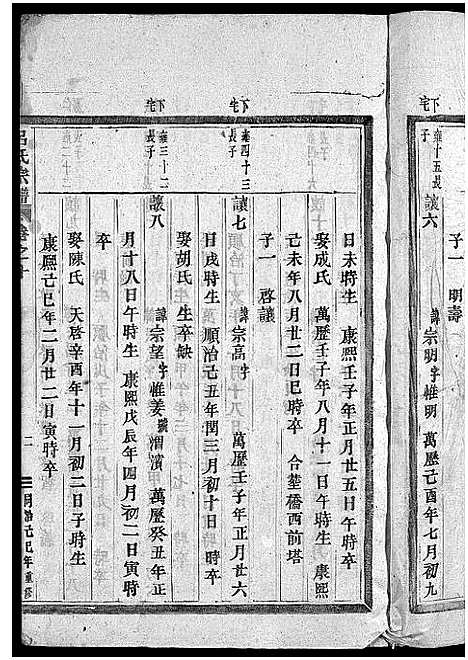 下宅
雍十五長子
讓六 諱宗明字惟明 萬歷己酉年七月初九
子一 明壽
日未時生 康熙壬子年正月廿五日午時卒
娶成氏 萬歷壬子年八月十一日午時生 康熙
己未年八月廿二日巳時卒 合塟橋西前塔
子一 啓讓
下宅
雍四十三長子
讓七 諱宗高字 萬歷壬子年正月廿六
日戌時生 順治己丑年閏三月初十日時卒
娶胡氏 生卒缺
下宅
雍三十二長子
讓八 諱宗望字惟姜號渭濱 萬歷癸丑年正
月十八日午時生 康熙戊辰年四月初二日寅時
卒
娶陳氏 天啓辛酉年十一月初二日子時生
康熙己巳年二月廿二日寅時卒
呂氏宗譜 卷之
二
同治己巳年重修